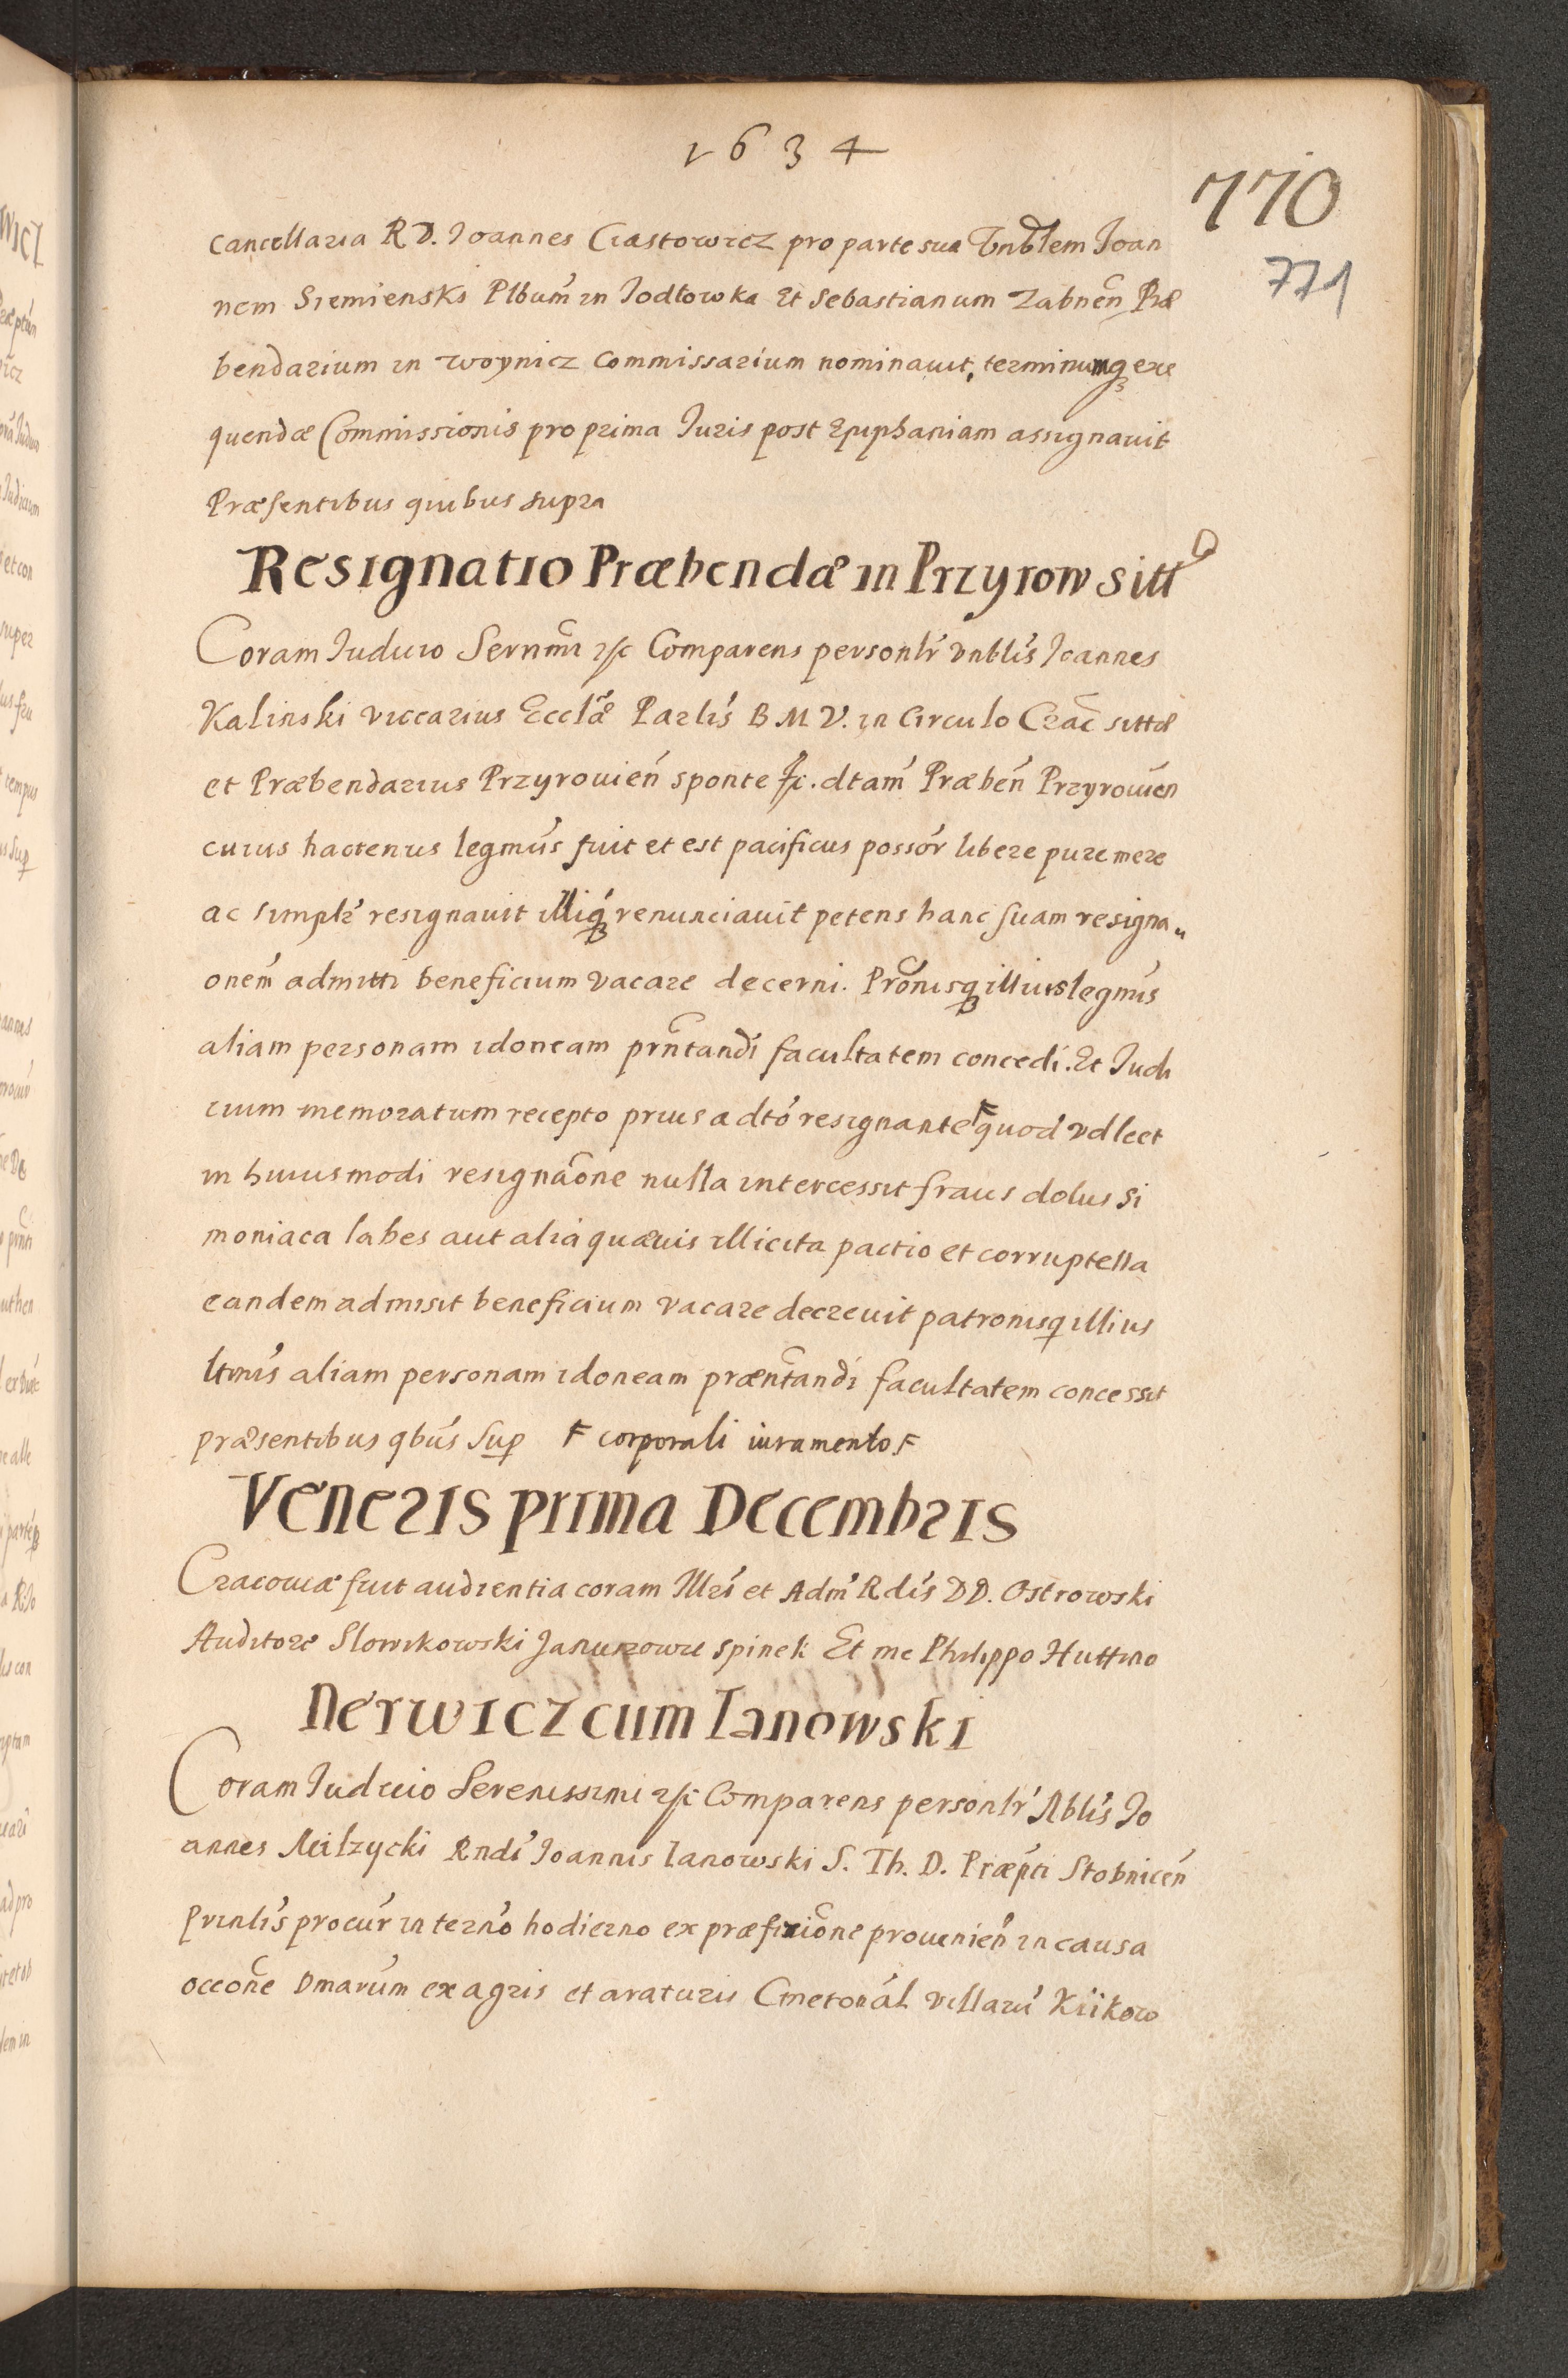 1634
770
771
cancellaria R D. Joannes Ciastowicz pro parte sua Vnblem Joan
nem Siemienski Plbum̃ in Jodłowka Et Sebastianum Zabnen̄ Præ
bendarium in Woynicz Commissarium nominauit, terminumqꝫ exe
quendæ Commissionis pro prima Iuris post Epiphaniam assignauit
Præsentibus quibus supra
Resignatio Præbendæ in Przyrow sitt
Coram Iudicio Sernmi etc Comparens personlr̃ vnblis̃ Joannes
Kalinski viccarius Ecclæ̃ Parlis̃ B M V. in Circulo Crac̃ sittæ
et Præbendarius Przyrouień sponte etc. dtam̃ Præben̄ Przyrouień
cuius hactenus legmus̃ fuit et est pacificus possor̃ libere pure mere
ac simplr̃ resignauit illiqꝫ renunciauit petens hanc suam resigna„
onem̃ admitti beneficium vacare decerni. Pronisqꝫ illius legmis̃
aliam personam idoneam prntandi facultatem concedi. Et Iudi
cium memoratum recepto prius a dto resignante ꜰ quod vdlcet
in huiusmodi resignaõne nulla intercessit fraus dolus Si
moniaca labes aut alia quæuis illicita pactio et corruptella
eandem admisit beneficium vacare decreuit patronisqꝫ illius
ltmis̃ aliam personam idoneam præntandi facultatem concessit
præsentibus qbus̃ Sup ꜰ corporali iuramento ꜰ
Veneris prima Decembris
Cracouiæ fuit audientia coram Illri et Adm̃ Rdis̃ DD. Ostrowski
Auditore Slowikowski Januszowic Spinek Et me Philippo Huttino
Nerwicz cum Ianowski
Coram Iudicio Serenissimi etc Comparens personlr̃ Nblis̃ Jo
annes Milzycki Rndi Joannis Ianowski S. Th. D. Præpti Stobnicen̄
Prinlis̃ procur̃ in terno hodierno ex præfixione prouenien̄ in causa
occone Dmarum̃ ex agris et araturis Cmetonal̃ villarũ Kiikow